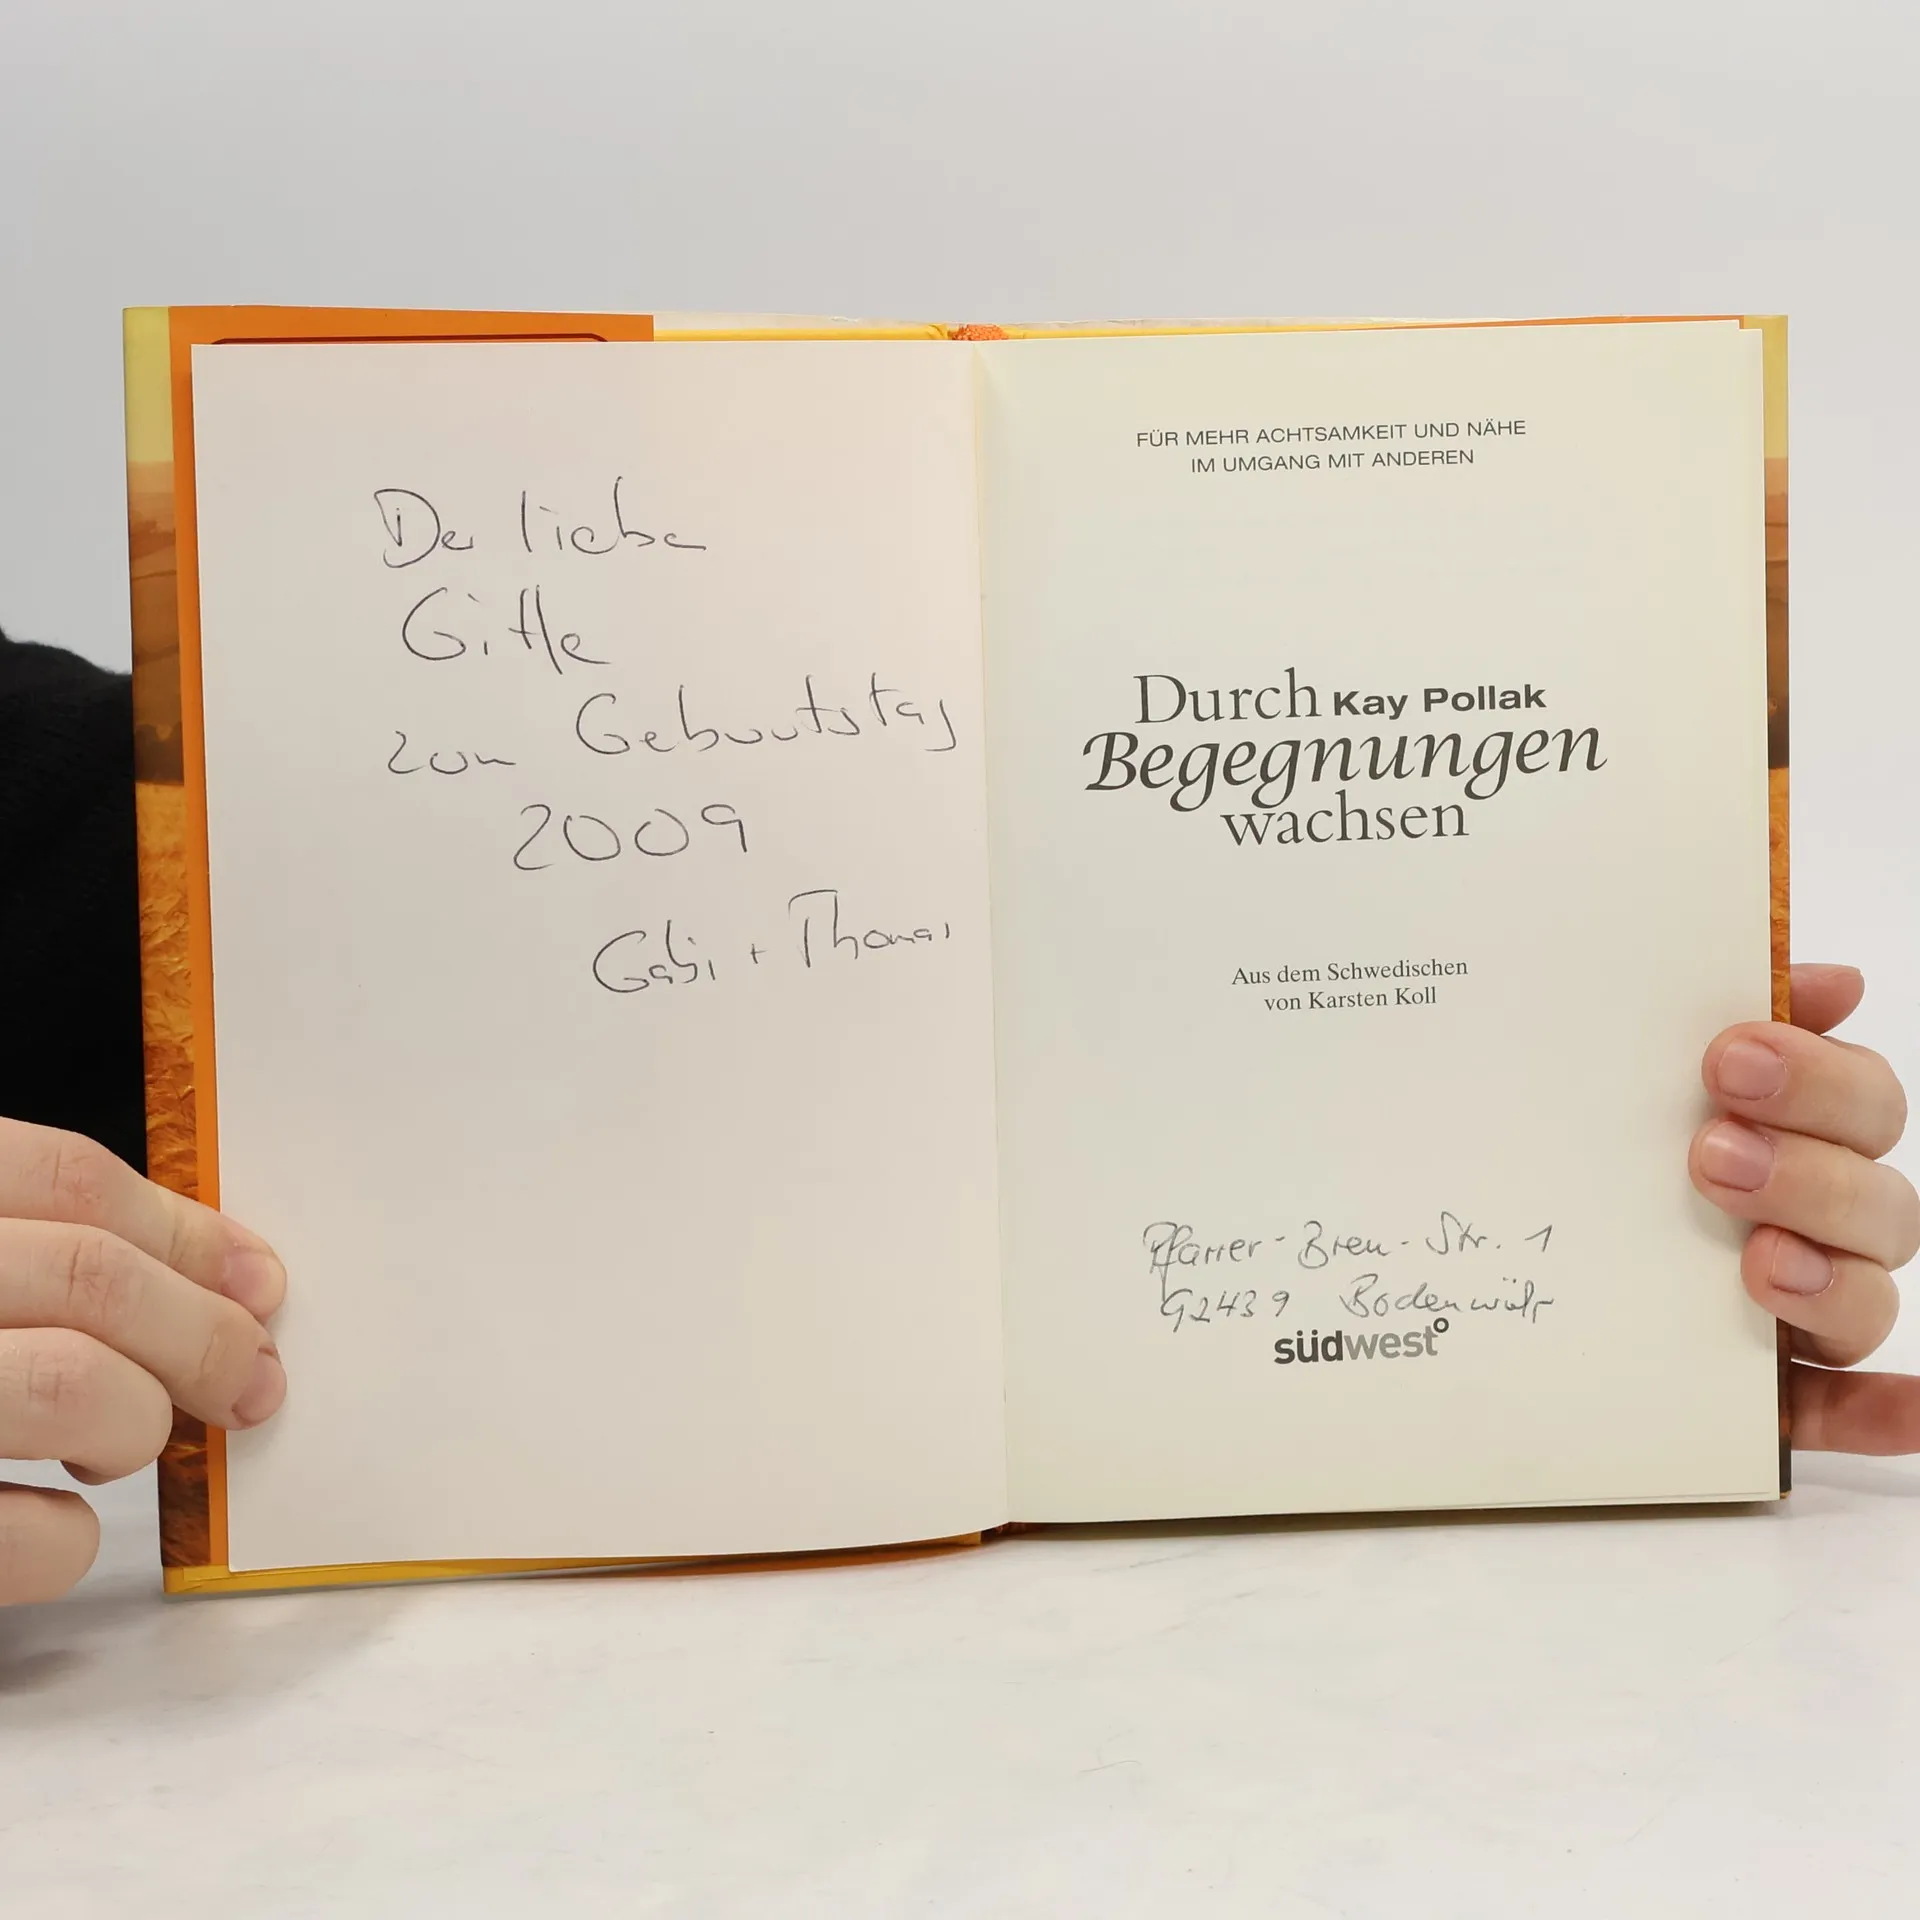 Der liebe
Gitte
zum Geburtstag
2009
Gabi + Thomas
FÜR MEHR ACHTSAMKEIT UND NÄHE
IM UMGANG MIT ANDEREN
Durch Kay Pollak
Begegnungen
wachsen
Aus dem Schwedischen
von Karsten Koll
Pfarrer-Breu-Str. 1
92439 Bodenwöhr
südwest°